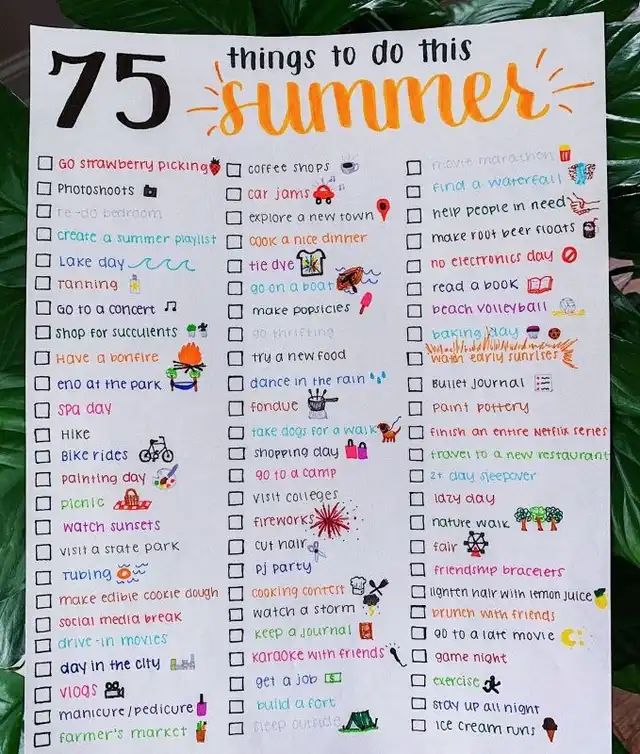 75 things to do this
summer
Go strawberry picking
Photoshoots
re-do bedroom
create a summer playlist
Lake day
Tanning
Go to a concert
Shop for succulents
Have a bonfire
eno at the park
Spa day
Hike
Bike rides
painting day
picnic
watch sunsets
visit a state park
Tubing
make edible cookie dough
social media break
drive-in movies
day in the city
vlogs
manicure/pedicure
farmer's market
coffee shops
car jams
explore a new town
cook a nice dinner
tie dye
go on a boat
make popsicles
go thrifting
try a new food
dance in the rain
fondue
take dogs for a walk
shopping day
go to a camp
visit colleges
fireworks
cut hair
pj party
cooking contest
watch a storm
keep a journal
karaoke with friends
get a job
build a fort
sleep outside
movie marathon
find a waterfall
help people in need
make root beer floats
no electronics day
read a book
beach volleyball
baking day
watch early sunrises
Bullet journal
paint pottery
finish an entire Netflix series
travel to a new restaurant
2+ day sleepover
lazy day
nature walk
fair
friendship bracelets
lighten hair with lemon juice
brunch with friends
go to a late movie
game night
exercise
stay up all night
ice cream runs